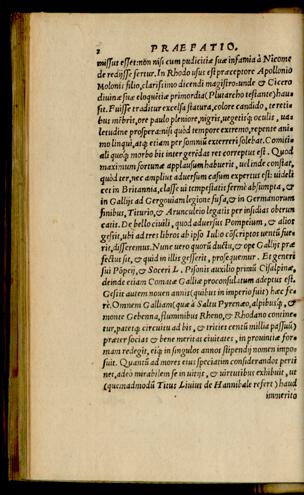 2 PRAEFATIO.
missus esset: non nisi cum pudicitiæ suæ infamia à Nicome
de redijsse fertur. In Rhodo usus est præceptore Apollonio
Molonis filio, clarissimo dicendi magistro: unde & Cicero
diuinæ suæ eloquētiæ primordia (Plutarcho testante) hau=
sit. Fuisse traditur excelsa statura, colore candido, tereti=
bus mēbris, ore paulo pleniore, nigris, uegetisq́ oculis, ua=
letudine prospera: nisi quòd tempore extremo, repente ani=
mo linqui, atq́ etiam per somnū exterreri solebat. Comiti=
ali quoq́ morbo bis inter gerēdas res correptus est. Quod
maximum fortunæ applausum habuerit, uel inde constat,
quòd ter, nec amplius aduersum casum expertus est: uideli
cet in Britannia, classe ui tempestatis fermè absumpta, &
in Gallijs ad Gergouiam legione fusa, & in Germanorum
finibus, Titurio, & Arunculeio legatis per insidias oberun
catis. De bello ciuili, quod aduersus Pompeium, & alios
gessit, ubi ad tres libros ab ipso Iulio cōscriptos uentū fue=
rit, disseremus. Nunc uero quorū ductu, & ope Gallijs præ
fectus sit, & quid in illis gesserit, prosequemur. Et generi
sui Pōpeij, & Soceri L. Pisonis auxilio primū Cisalpinæ,
deinde etiam Comatæ Galliæ proconsultum adeptus est.
Gessit autem nouem annis (quibus in imperio fuit) hæc fe=
rè. Omnem Galliam (quæ à Saltu Pyrenæo, alpibusq́, &
monte Gebenna, fluminibus Rheno, & Rhodano contine=
tur, patetq́ circuitu ad bis, & trities centū millia passuū)
præter socias & bene meritas ciuitates, in prouinciæ for=
mam redegit, eiq́ in singulos annos stipendij nomen impo=
suit. Quantū ad mores eius speciatim considerandos perti
net, adeò mirabilem se in uitijs, & uirtutibus exhibuit, ut
(quemadmodū Titus Liuius de Hannibale refert) haud
immerito